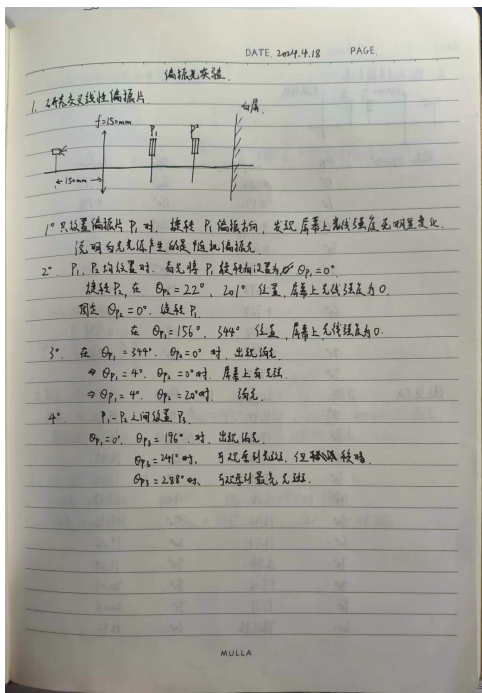 DATE. 2024.4.18 PAGE.
偏振光实验.
1. 研究交叉线性偏振片.
f=150mm P₁ P² 白屏
←150mm→
1° 只放置偏振片 P₁ 时. 旋转 P₁ 偏振方向, 发现屏幕上光线强度无明显变化.
说明白光光源产生的是随机偏振光.
2° P₁, P₂ 均放置时. 首先将 P₁ 旋转角设置为 θp₁=0°.
旋转P₂, 在 θp₂=22°, 201° 位置, 屏幕上光线强度为0.
固定 θp₂=0°. 旋转P₁
在 θp₁=156°. 344° 位置, 屏幕上光线强度为0.
3°. 在 θp₁=344°. θp₂=0° 时. 出现消光
⇒ θp₁=4°. θp₂=0°时. 屏幕上有光强.
⇒ θp₁=4°. θp₂=20°时. 消光.
4° P₁-P₂之间放置P₃.
θp₁=0°. θp₃=196°.时. 出现消光.
θp₃=241°时, 可观察到光斑. 但较暗.
θp₃=288°时, 可观察到最亮光斑.
MULLA